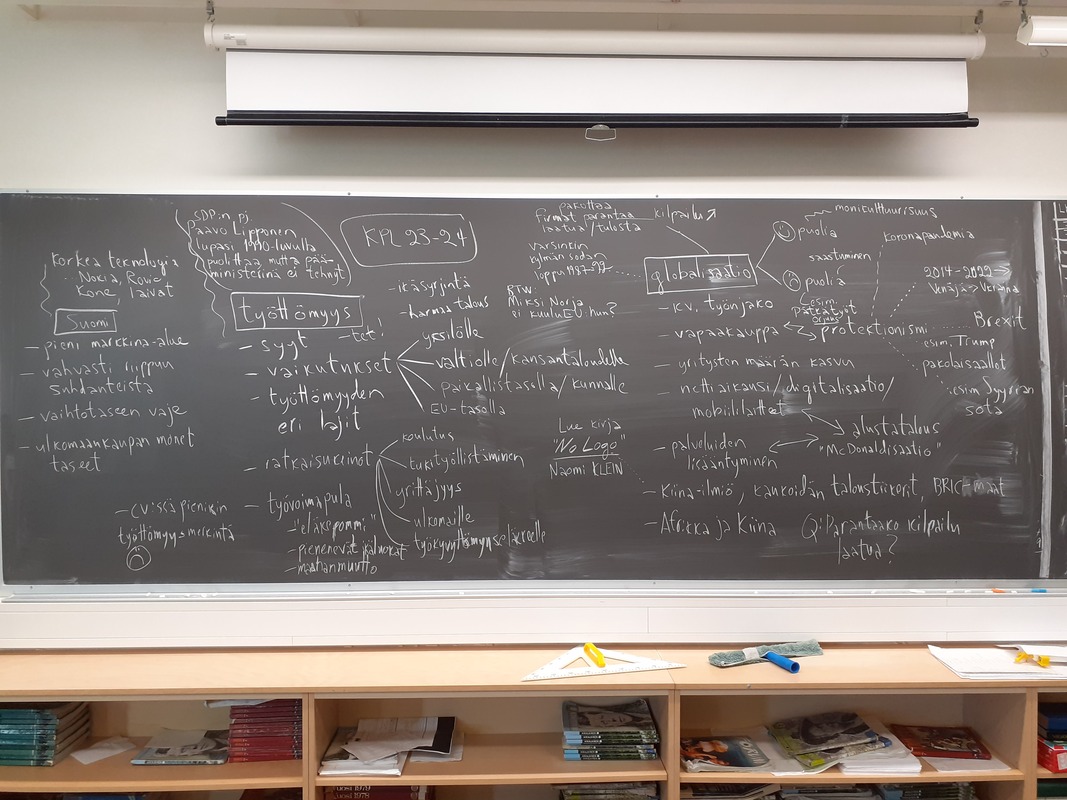 KPL 23-24
SDP:n pj.
Paavo Lipponen
lupasi 1990-luvulla
puolittaa, mutta pää-
ministerinä ei tehnyt
korkea teknologia
Nokia,
Kone, laivat
Suomi
- pieni markkina-alue
- vahvasti riippuv
suhdanteista
- vaihtotaseen vaje
- ulkomaankaupan monet
taseet
- CV:ssä pienikin
työttömyysmerkintä
työttömyys
- syyt
- tet!
- vaikutukset
- työttömyyden
eri lajit
- ratkaisukeinot
- työvoimapula
- "eläkepommi"
- pienenevät ikäluokat
- maahanmuutto
- ikäsyrjintä
- harmaa talous
yksilölle
valtiolle/kansantaloudelle
paikallistasolla/kunnalle
EU-tasolla
koulutus
tukityöllistäminen
yrittäjyys
ulkomaille
työkyvyttömyyseläkkeelle
pakottaa
firmat parantaa
laatua/tulosta
kilpailu↗
varsinkin
kylmän sodan
loppu 1987-91
BTW:
Miksi Norja
ei kuulu EU:hun?
Lue kirja
"No Logo"
Naomi KLEIN
globalisaatio
puolia
monikulttuurisuus
puolia
saastuminen
(esim.
pätkätyöt
- kv. työnjako
- vapaakauppa
protektionismi
- yritysten määrän kasvu
- nettiaikausi/digitalisaatio/
mobiililaitteet
alustatalous
- palveluiden
lisääntyminen
"McDonaldisaatio"
- Kiina-ilmiö, kaukoidän taloustiikerit, BRIC-maat
- Afrikka ja Kiina
Q: Parantaako kilpailu
laatua?
koronapandemia
2014-2022→
Venäjä→Ukraina
Brexit
esim. Trump
pakolaisaallot
esim. Syyrian
sota